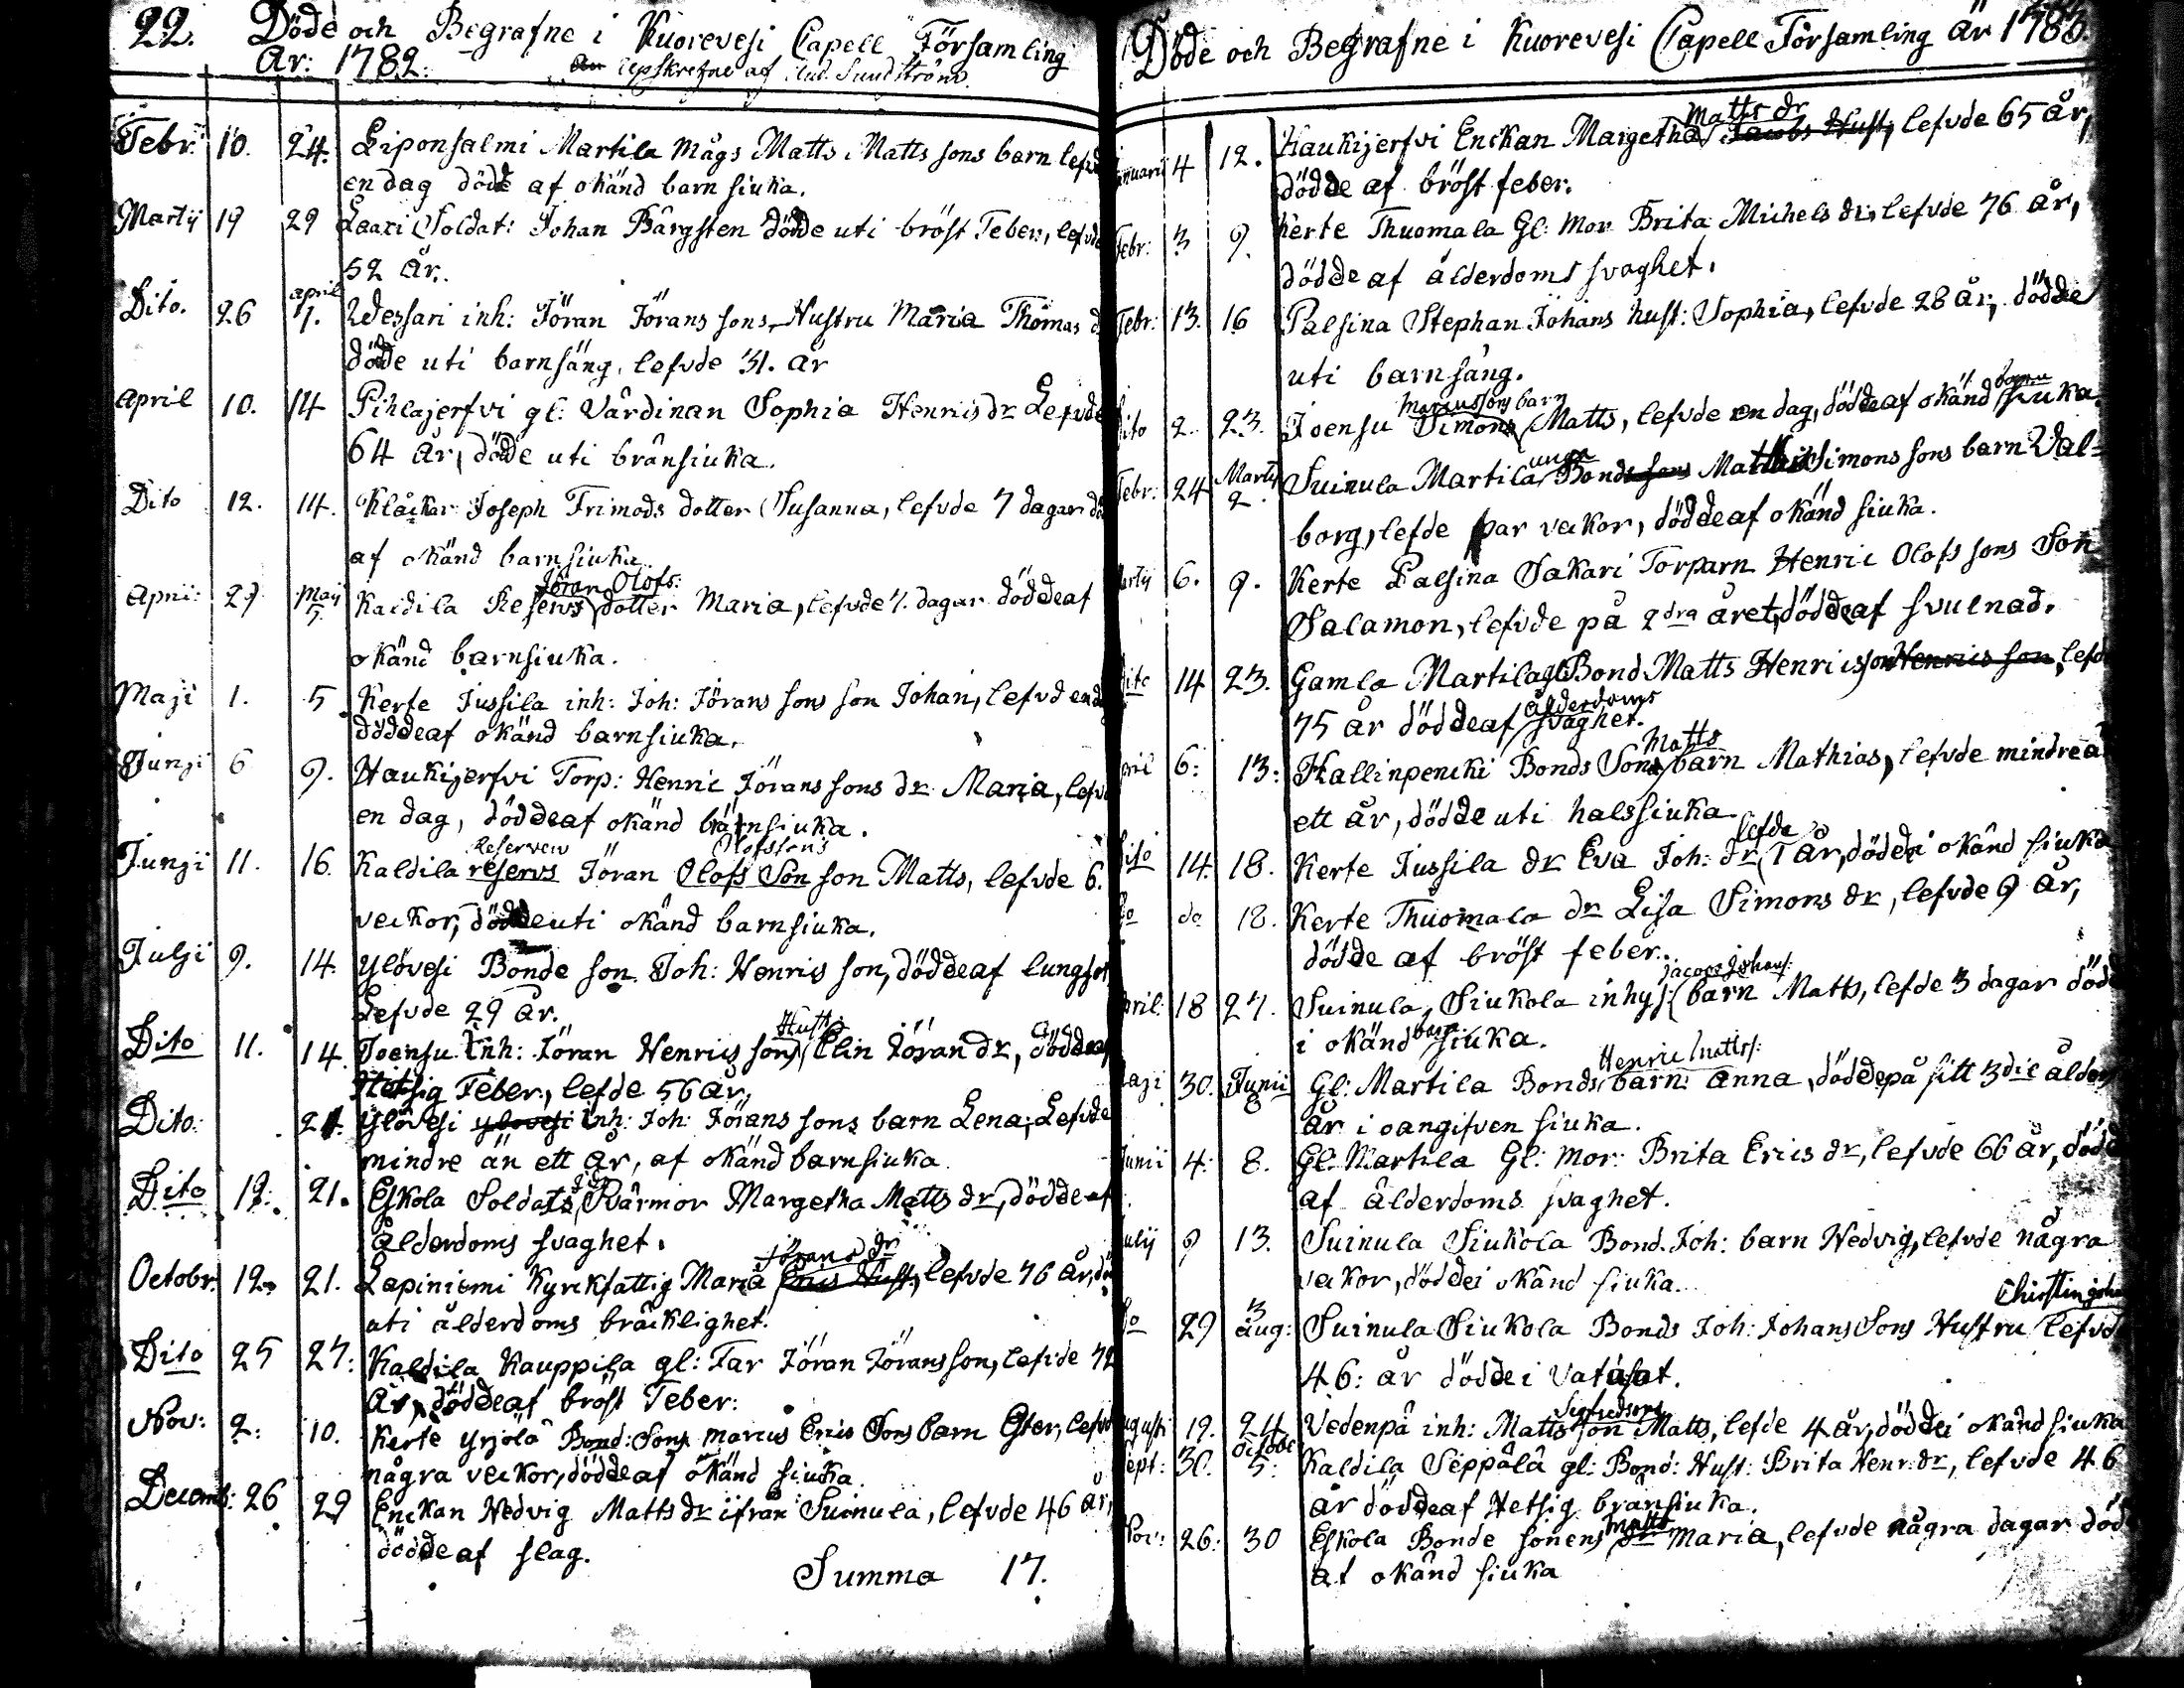 22. Döde och Begrafne i Kuorevesi Capell Församling
År: 1782. Upskrefne af And. Sundström.
Febr: 10. 24. Liponsalmi Martila mågs Matts Matts sons barn lefvde
en dag dödde af okänd barn siuka.
Martij 19 29 Laari Soldat: Johan Bärgsten dödde uti bröst Feber, lefvde
52 år.
Dito. 26 april 7. Wessari inh: Jöran Jörans sons Hustru Maria Thomas d
dödde uti barnsäng, lefvde 31. år
April 10. 14 Pihlajerfvi gl: Värdinan Sophia Henrics dr Lefvde
64 år, dödde uti bränsiuka.
Dito 12. 14. Klåckar Joseph Frimods dotter Susanna, lefvde 7 dagar dö
af okänd barnsiuka.
Jöran Olofs:
April: 29 Maij 5. Kaldila Reservs dotter Maria, lefvde 7. dagar döddeaf
okänd barnsiuka.
Maji 1. 5 Kerte Jussila inh: Joh: Jörans sons son Johan, lefvd end
döddeaf okänd barnsiuka.
Junji 6 9. Haukijerfvi Torp: Henric Jörans sons dr Maria, lefv
en dag, döddeaf okänd barnsiuka.
Reserven Olofssons
Junji 11. 16. Kaldila reservs Jöran Olofs Son son Matts, lefvde 6.
veckor, dödde uti okänd barnsiuka.
Julji 9. 14. Ylövesi Bonde son Joh: Henrics son, döddeaf lungsot
Lefvde 29 år.
Hust:
Dito 11. 14. Joensu Inh: Jöran Henrics sons Elin Jöran dr, döddeaf
Hetsig Feber, lefde 56 år,
Dito: 21. Ylövesi ylovesi Inh: Joh: Jörans sons barn Lena, Lefvde
mindre än ett år, af okänd barnsiuka
Dito 12. 21. Eskola Soldats Svärmor Margetha Matts dr, döddeaf
Ålderdoms svaghet.
Jörans dr
Octobr. 12. 21. Lapiniemi Kyrckfattig Maria Erics Hust, lefvde 76 år, dö
uti ålderdoms bräcklighet.
Dito 25 27: Kaldila Kauppila gl: Far Jöran Jöransson, lefvde 72
År, döddeaf bröst Feber:
Nov: 2: 10. Kerte Yrjölä Bond: Sons Marcus Erics Sons barn Ester, lefvd
några veckor, döddeaf okänd siuka
Decemb: 26 29 Enckan Hedvig Matts dr ifrån Suinula, lefvde 46 år,
dödde af slag.
Summa 17.
Döde och Begrafne i Kuorevesi Capell Församling år 1783.
Matts dr
Januarii 4 12. Haukijerfvi Enckan Margetha Jacobs Hust, lefvde 65 år,
dödde af bröst feber.
Febr: 3 9. Kerte Thuomala Gl: Mor Brita Michels dr, lefvde 76 år,
dödde af ålderdoms svaghet.
Febr: 13. 16 Palsina Stephan Johans hust: Sophia, lefvde 28 år, dödde
uti barnsäng.
Marcussons barn barn
Dito 2. 23. Joensu Simons Matts, lefvde en dag, döddeaf okänd siuka.
unga
Febr: 24 Martij 2. Suinula Martila Bonds sons Matts Simons sons barn Val=
borg, lefde par veckor, döddeaf okänd siuka.
Martij 6. 9. Kerte Palsina Sakari Torparn Henric Olofs sons Son
Salamon, lefvde på 2dra året, döddeaf svulnad.
Dito 14 23. Gamla Martila gl: Bond Matts Henricsson Henrics son, lefd
75 år döddeaf ålderdoms svaghet.
Matts
April 6: 13: Hallinpencki Bonds Sons barn Mathias, lefvde mindre ä
ett år, dödde uti halssiuka
lefde
Dito 14. 18. Kerte Jussila dr Eva Joh: dr 1 år, döddei okänd siuka
Do do 18. Kerte Thuomala dr Lisa Simons dr, lefvde 9 år,
dödde af bröst feber.
Jacobs Johans:
April: 18 27. Suinula, Siukola inhys: barn Matts, lefde 3 dagar död
i okänd barn siuka.
Henric Matts:
Maji 30. Junii 8 Gl: Martila Bonds barn Anna, döddepå sitt 3die ålders
år i oangifven siuka.
Junii 4: 8. Gl: Martila Gl: Mor: Brita Erics dr, lefvde 66 år, död
af ålderdoms svaghet.
Julij 9 13. Suinula Siukola Bond. Joh: barn Hedvig, lefvde några
veckor, döddei okänd siuka.
Christin Joha
Do 29 3 Aug: Suinula Siukola Bonds Joh: Johans Sons Hustru lefvd
46: år döddei Vatusot.
Sigfredsons
Augusti 19. 24 Vedenpä inh: Matts son Matts, lefde 4 år, döddei okänd siuka
Sept: 30. Octobr 5: Kaldila Seppälä gl: Bond: Hust: Brita Henr: dr, lefvde 46
år döddeaf Hetsig bränsiuka.
Matts
Nov: 26: 30 Eskola Bonde sonens dr Maria, lefvde några dagar död
af okänd siuka